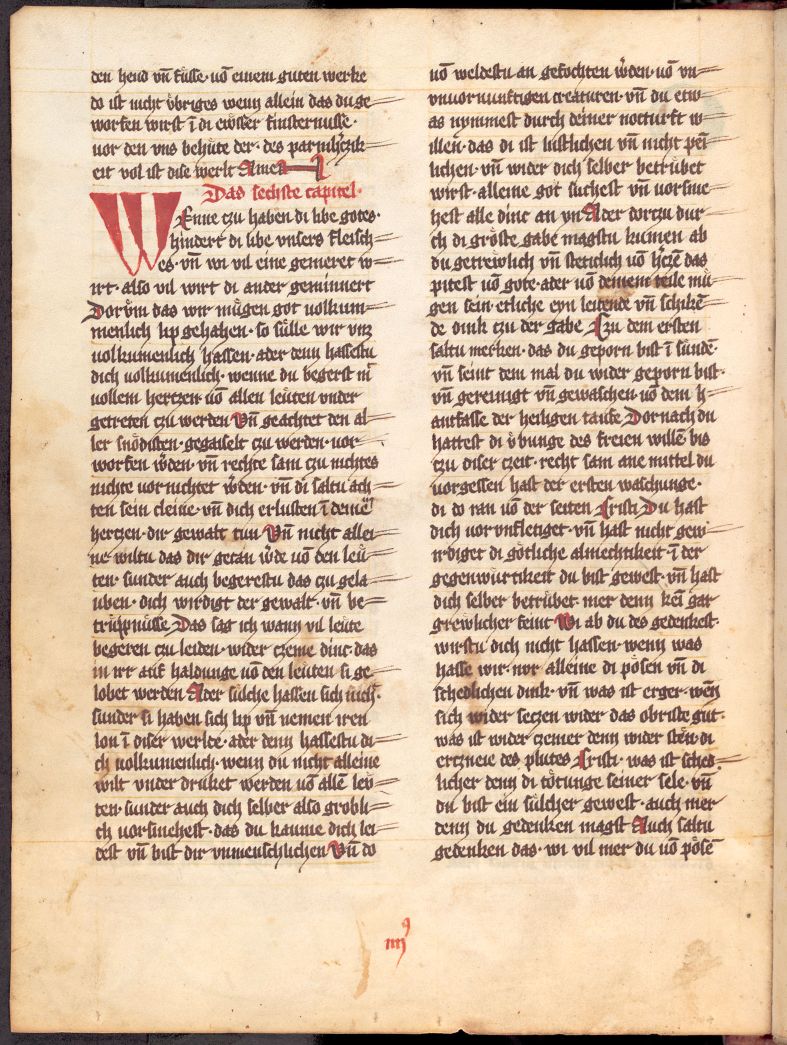 den hend vn̄ fusse· uō einem guten werke
do ist nicht v̈briges wenn allein das du ge=
worfen wirst ī di ewsser finsternusse·
uor den vns behüte der· des parmhᵉczik=
eit vol ist dise werlt Amen
Das sechste capitel·
Wenne czu haben di libe gotes·
hindert di libe vnsers fleisch=
es· vn̄ wi vil eine gemeret w=
irt· also vil wirt di ander geminnert
Dorv̄m das wir mügen got uolkum=
menlich lip gehahen· so sülle wir vnz
uolkumenlich hassen· ader denn hassestu
dich uolkumenlich· wenne du begerst mͥ
uollem hertzen· uō allen leüten vnder
getreten czu werden Vn̄ geachtet den al=
ler snödisten· gegaiselt czu werden· uor=
worfen wᵉden· vn̄ rechte sam czu nichtes
nichte uornichtet wᵉden· vn̄ di saltu ach=
ten sein cleine· vn̄ dich erlusten ī deinē
hertzen· dir gewalt tun Vn̄ nicht allei=
ne wiltu das dir getan wᵉde uō den leü=
ten· sunder auch begerestu das czu gela=
uben· dich wirdigt der gewalt· vn̄ be=
trüpnüsse Das sag ich wann vil leute
begeren czu leiden· wider czeme dinc· das
in irr auf haldunge uō den leuten si ge=
lobet werden Ader sülche hassen sich nich·
sunder si haben sich lip vn̄ nemen iren
lon ī diser werlte· ader denn hassestu di=
ch uolkumenlich· wenn du nicht alleine
wilt vnder druket werden uō allē leü=
ten· sunder auch dich selber also grobli=
ch uorsmehest· das du kaume dich lei=
dest vn̄ bist dir vnmenschlichen Vn̄ do
uō weldestu an gefochten wᵉden· uō vn=
vnuornunftigen creaturen· vn̄ du etw=
as nymmest durch deiner notturft w=
illen· das di ist lustlichen vn̄ nicht pei=
lichen· vn̄ wider dich selber betrübet
wirst· alleine got suchest vn̄ uorsme=
hest alle dinc an yn Ader dorczu dur=
ch di gröste gabe magstu kumen ab
du getrewlich vn̄ steticlich uō hᵉczē das
pitest uō gote· ader uō deinem teile mü=
gen sein· etliche eyn leitende vn̄ schikē=
de dink czu der gabe Czu dem ersten
saltu merken· das du geporn bist ī sündē·
vn̄ seint dem mal du wider geporn bist·
vn̄ gereinigt vn̄ gewaschen uō dem h=
antfasse der heiligen taufe Dornach du
hattest di v̈bunge des freien willē bis
czu diser czeit· recht sam ane mittel du
uorgessen hast der ersten waschunge·
di do ran uō der seiten Cristi Du hast
dich uorvnfletiget· vn̄ hast nicht gew=
irdiget di götliche almechtikeit ī der
gegenwürtikeit du bist gewest· vn̄ hast
dich selber betrübet· mer denn kei̅ gar
grewlicher feint Wi ab du des gedenkest·
wirstu dich nicht hassen· wenn was
hasse wir· nor alleine di pösen vn̄ di
schedlichen dink· vn̄ was ist erger· wēn
sich wider seczen wider das obriste gut·
was ist wider czemer denn wider stēn· di
ertzneie des plutes Cristi· was ist sched=
licher denn di tötunge seiner sele· vn̄
du bist ein sülcher gewest· auch mer
denn du gedenken magst Auch saltu
gedenken das· wi vil mer du uō pöse
iiij⁹